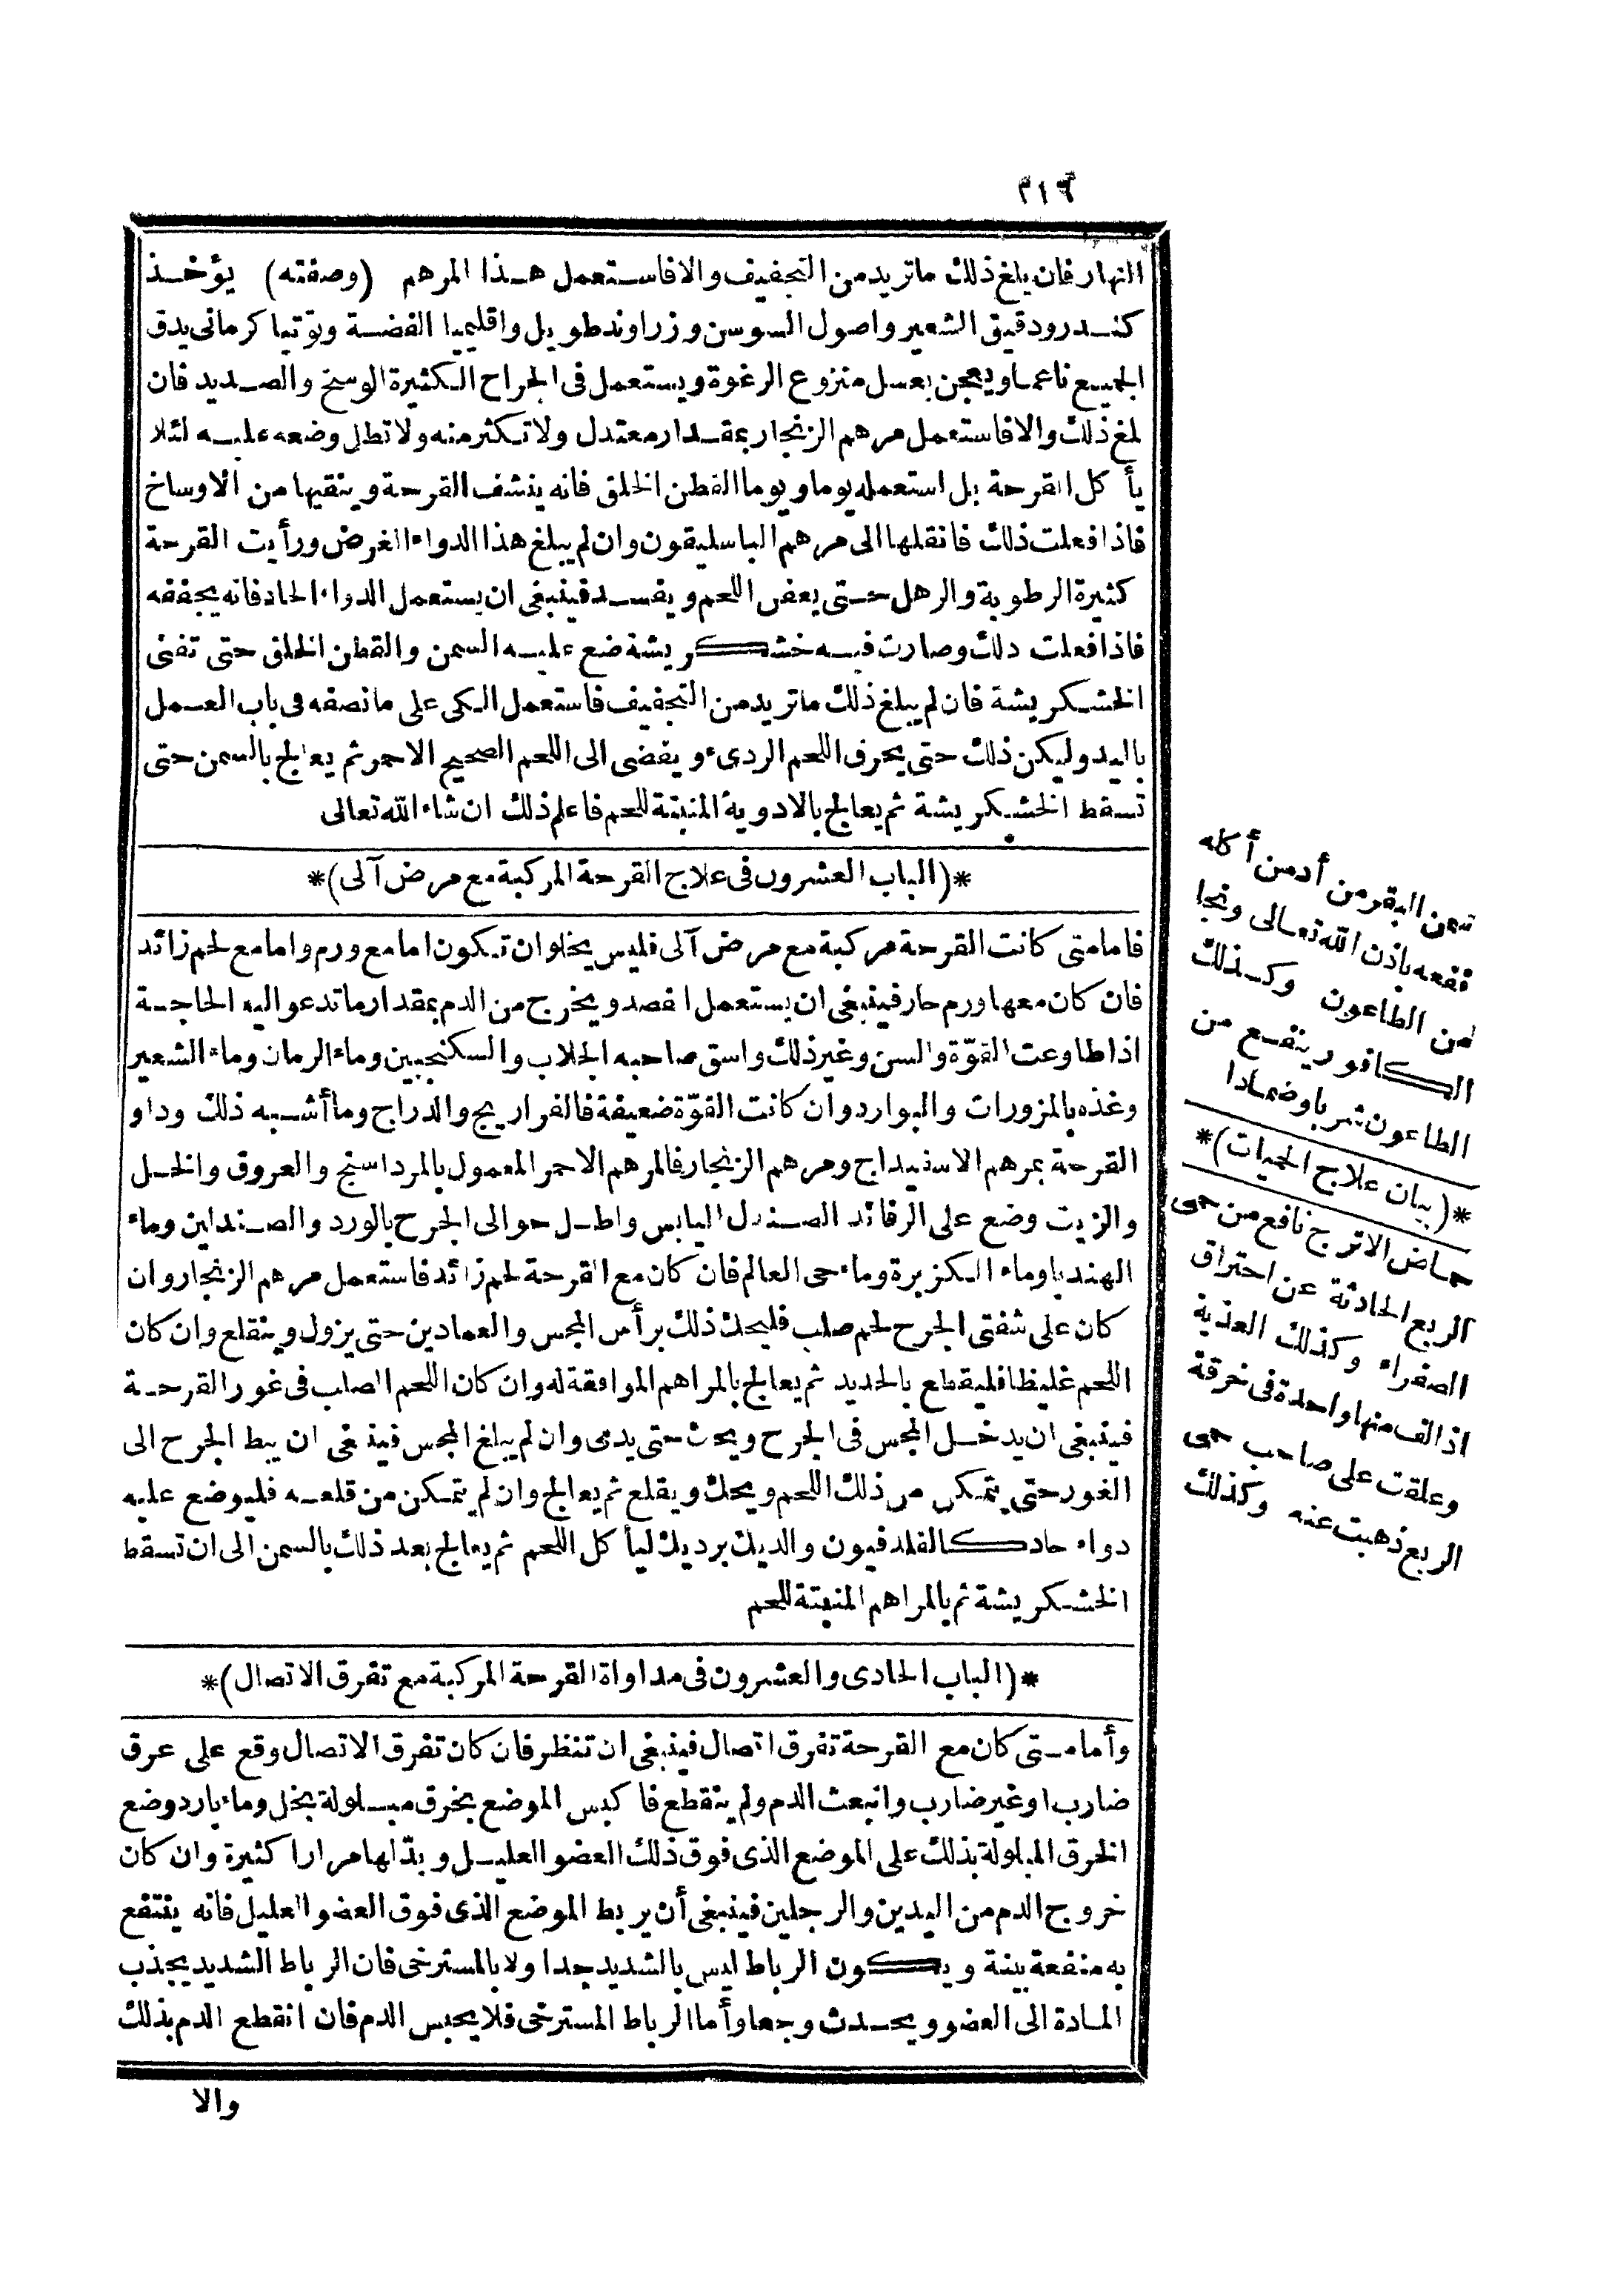 ٢١٦
النهار فان بلغ ذلك ما تريد من التجفيف والا فاستعمل هذا المرهم (وصفته) يؤخذ
كندر ودقيق الشعير واصول السوسن وزراوند طويل واقليميا الفضة وتوتيا كرمانى يدق
الجميع ناعما ويعجن بعسل منزوع الرغوة ويستعمل فى الجراح الكثيرة الوسخ والصديد فان
بلغ ذلك والا فاستعمل مرهم الزنجار بمقدار معتدل ولا تكثر منه ولا تطل وضعه عليه لئلا
يأكل القرحة بل استعمله يوما ويوما القطن الخلق فانه ينشف القرحة وينقيها من الاوساخ
فاذا فعلت ذلك فانقلها الى مرهم الباسليقون وان لم يبلغ هذا الدواء الغرض ورأيت القرحة
كثيرة الرطوبة والرهل حتى يعفن اللحم ويفسد فينبغى ان يستعمل الدواء الحاد فانه يجففه
فاذا فعلت دلك وصارت فيه خشكريشة ضع عليه السمن والقطن الخلق حتى تفنى
الخشكريشة فان لم يبلغ ذلك ما تريد من التجفيف فاستعمل الكى على ما نصفه فى باب العمل
باليد وليكن ذلك حتى يحرق اللحم الردىء ويفضى الى اللحم الصحيح الاحمر ثم يعالج بالسمن حتى
تسقط الخشكريشة ثم يعالج بالادوية المنبتة للحم فاعلم ذلك ان شاء الله تعالى
*(الباب العشرون فى علاج القرحة المركبة مع مرض آلى)*
فاما متى كانت القرحة مركبة مع مرض آلى فليس يخلو ان تكون اما مع ورم واما مع لحم زائد
فان كان معها ورم حار فينبغى ان يستعمل الفصد ويخرج من الدم بمقدار ما تدعو اليه الحاجة
اذا طاوعت القوّة والسن وغير ذلك واسق صاحبه الجلاب والسكنجبين وماء الرمان وماء الشعير
وغذه بالمزورات والبوارد وان كانت القوّة ضعيفة فالفراريج والدراج وما أشبه ذلك وداو
القرحة بمرهم الاسفيداج ومرهم الزنجار فالمرهم الاحمر المعمول بالمرداسنج والعروق والخل
والزيت وضع على الرفائد الصندل اليابس واطل حوالى الجرح بالورد والصندلين وماء
الهندبا وماء الكزبرة وماء حى العالم فان كان مع القرحة لحم زائد فاستعمل مرهم الزنجار وان
كان على شفتى الجرح لحم صلب فليحك ذلك برأس المجس والعمادين حتى يزول وينقلع وان كان
اللحم غليظا فليقطع بالحديد ثم يعالج بالمراهم الموافقة له وان كان اللحم الصلب فى غور القرحة
فينبغى ان يدخل المجس فى الجرح ويحك حتى يدمى وان لم يبلغ المجس فينبغى ان يبط الجرح الى
الغور حتى يتمكن من ذلك اللحم ويحك ويقلع ثم يعالج وان لم يتمكن من قلعه فليوضع عليه
دواء حاد كالفلدفيون والديك برديك ليأكل اللحم ثم يعالج بعد ذلك بالسمن الى ان تسقط
الخشكريشة ثم بالمراهم المنبتة للحم
*(الباب الحادى والعشرون فى مداواة القرحة المركبة مع تفرق الاتصال)*
وأما متى كان مع القرحة تفرق اتصال فينبغى ان تنظر فان كان تفرق الاتصال وقع على عرق
ضارب او غير ضارب وانبعث الدم ولم ينقطع فاكبس الموضع بخرق مبلولة بخل وماء بارد وضع
الخرق المبلولة بذلك على الموضع الذى فوق ذلك العضو العليل وبدّلها مرارا كثيرة وان كان
خروج الدم من اليدين والرجلين فينبغى أن يربط الموضع الذى فوق العضو العليل فانه ينتفع
به منفعة بينة ويكون الرباط ليس بالشديد جدا ولا بالمسترخى فان الرباط الشديد يجذب
المادة الى العضو ويحدث وجعا وأما الرباط المسترخى فلا يحبس الدم فان انقطع الدم بذلك
والا
سمن البقر من أدمن أكله
نفعه باذن الله تعالى ونجا
من الطاعون وكذلك
الكافور ينفع من
الطاعون شربا وضمادا
*(بيان علاج الحميات)*
حماض الاترج نافع من حمى
الربع الحادثة عن احتراق
الصفراء وكذلك العذبة
اذا لف منها واحدة فى خرقة
وعلقت على صاحب حمى
الربع ذهبت عنه وكذلك